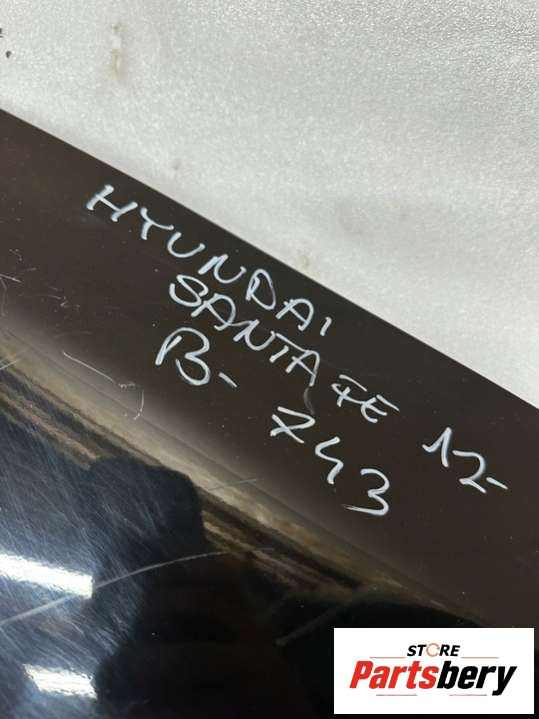 HYUNDAI
SANTA FE 12-
B- 743
STORE
Partsbery